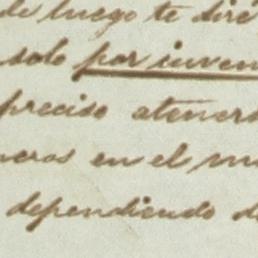 de luego te diré
solo por inven
preciso atener
neros en el m
dependiendo d